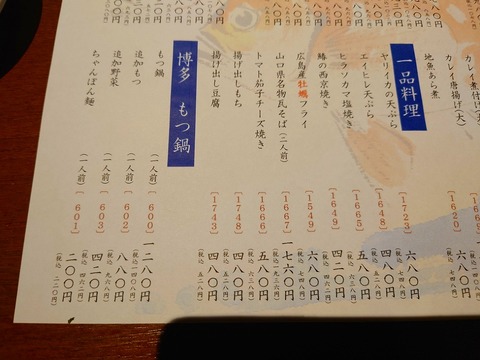 カレイ唐揚げ(大)
[1620]
地魚あら煮
一品料理
ヤリイカの天ぷら
[1723]
六八〇円
(税込 七四八円)
エイヒレ天ぷら
[1665]
ヒラソカマ塩焼き
[1648]
鰆の西京焼き
[1649]
四二〇円
(税込 四六二円)
広島産牡蠣フライ
[1549]
六八〇円
(税込 七四八円)
山口県名物瓦そば(二人前)
[1667]
一七六〇円
(税込 一九三六円)
トマト茄子チーズ焼き
[1666]
五八〇円
(税込 六三八円)
揚げ出しもち
[1748]
四八〇円
(税込 五二八円)
揚げ出し豆腐
[1743]
四八〇円
(税込 五二八円)
博多 もつ鍋
もつ鍋
(一人前)
[600]
一二八〇円
(税込 一四〇八円)
追加もつ
(一人前)
[602]
八八〇円
(税込 九六八円)
追加野菜
(一人前)
[603]
四二〇円
(税込 四六二円)
ちゃんぽん麺
(一人前)
[601]
二〇〇円
(税込 二二〇円)